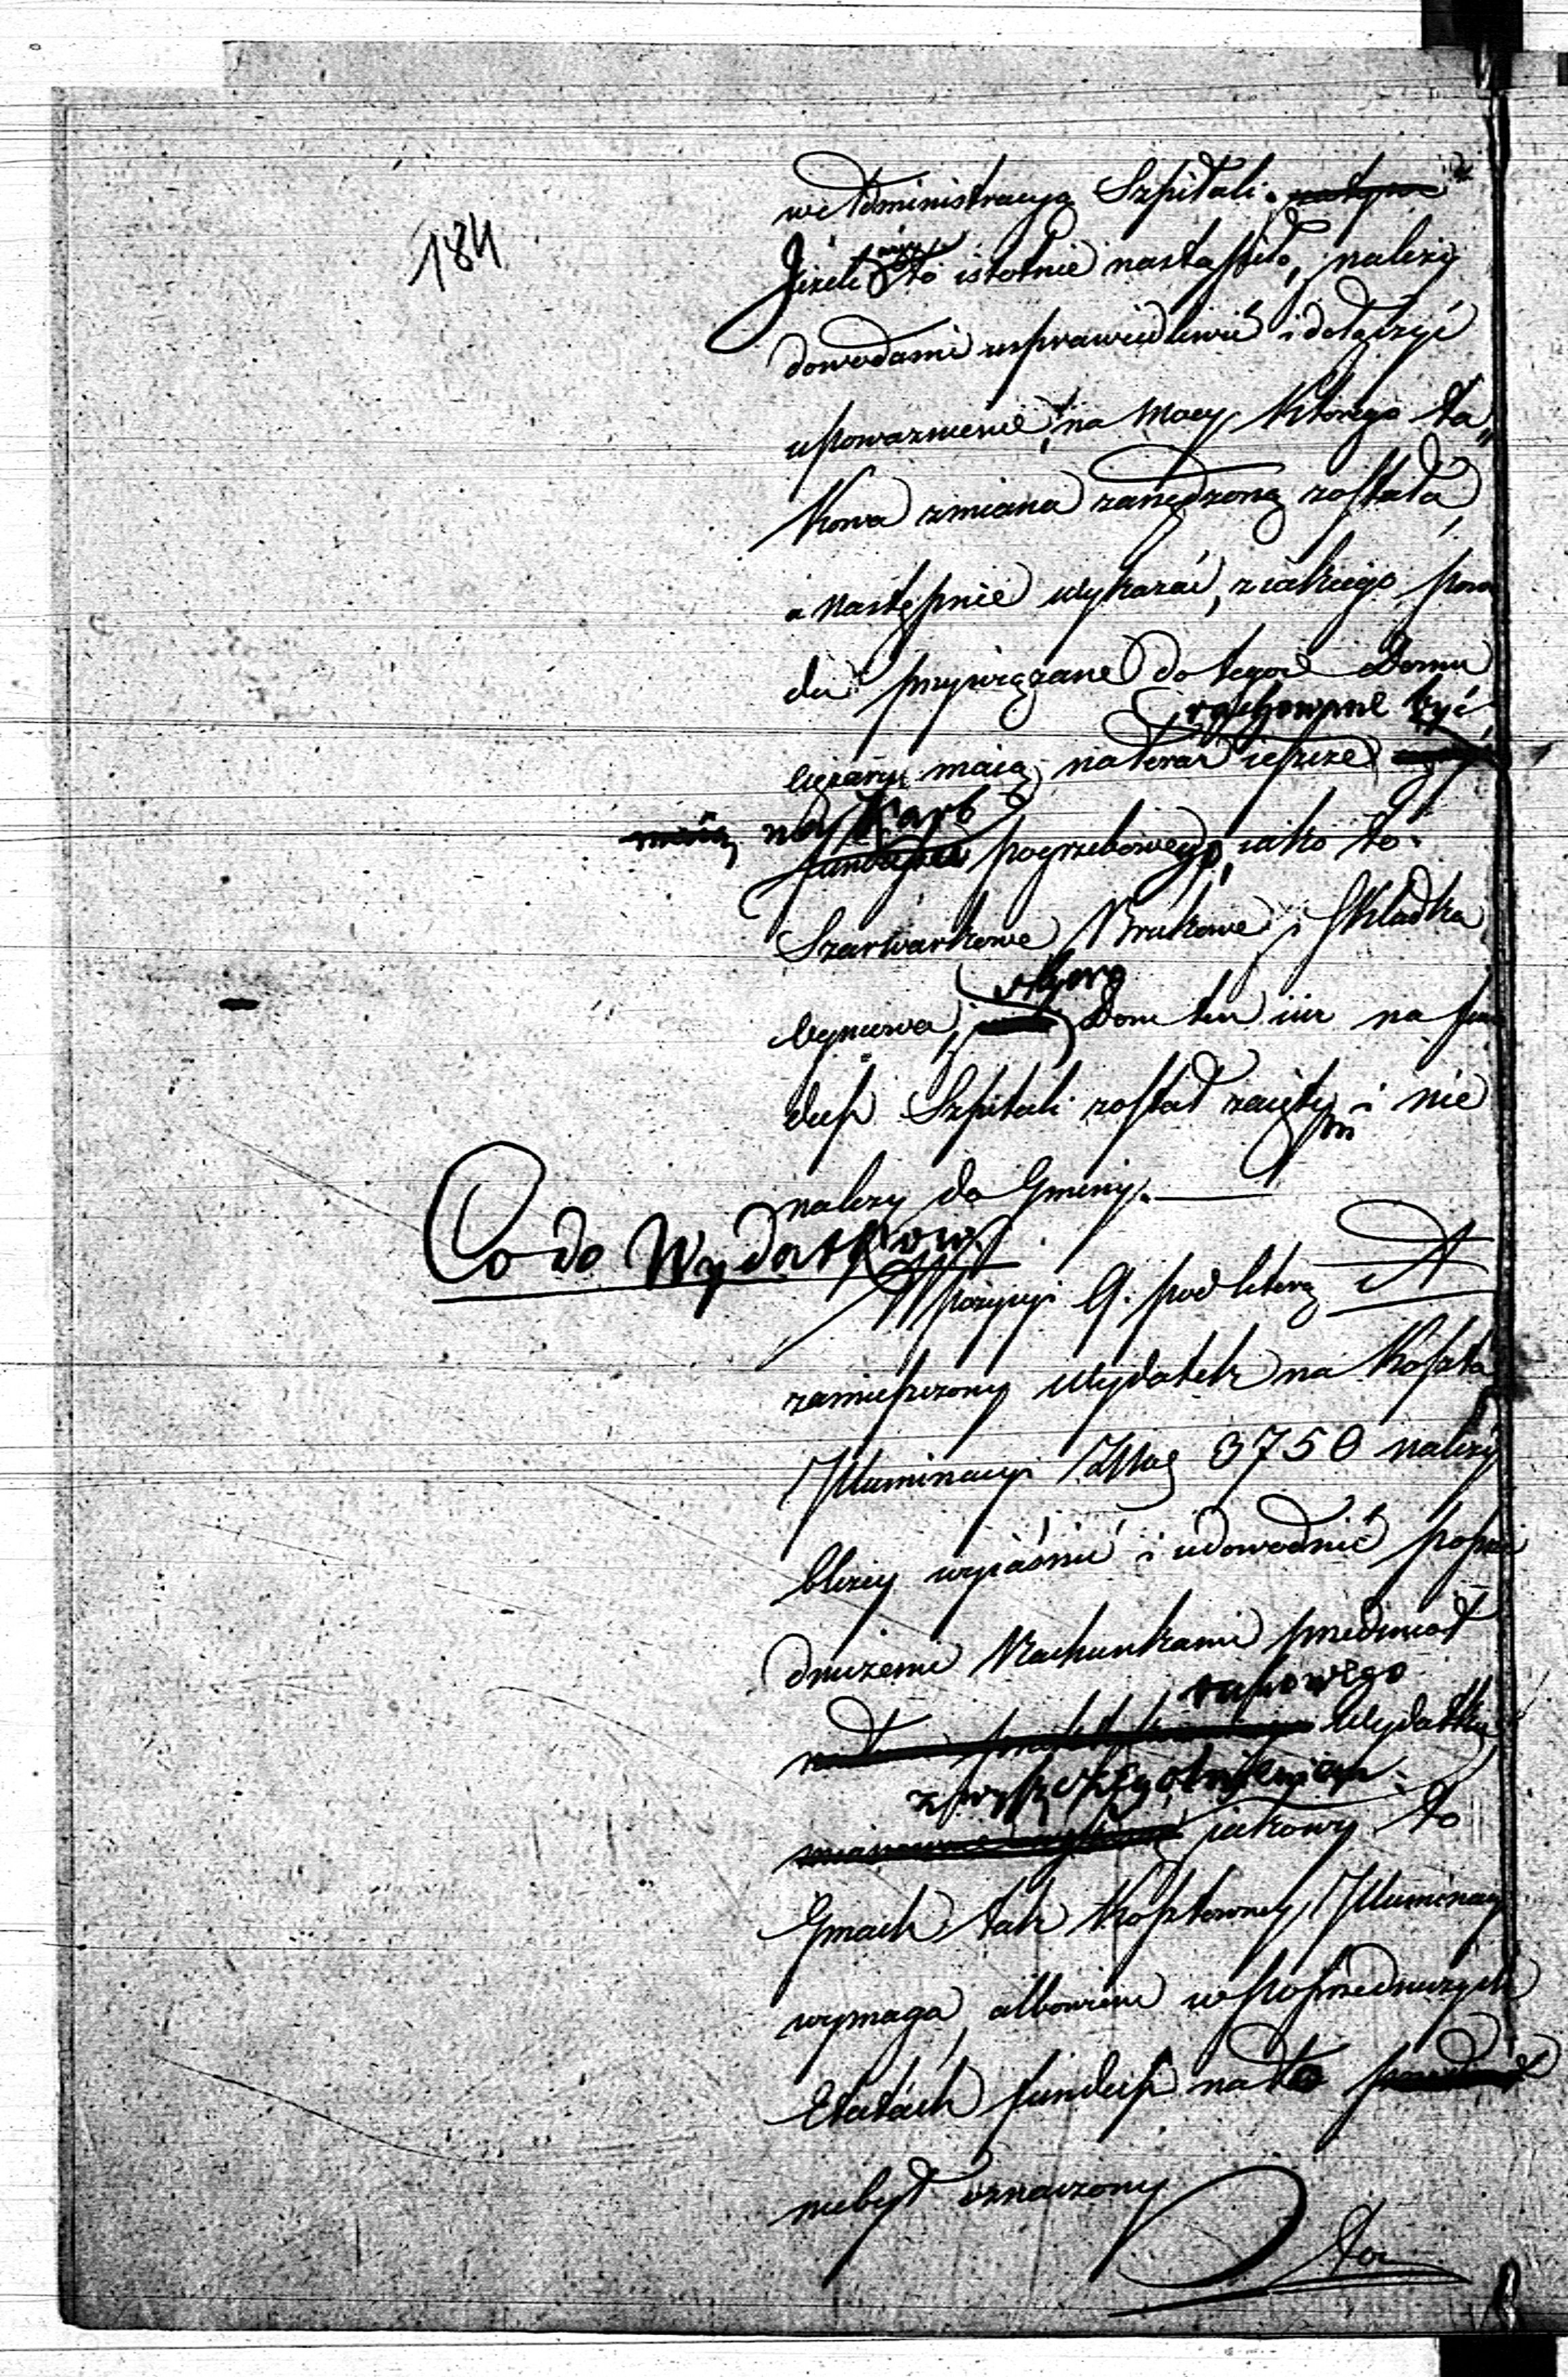 184
w Administracyą Szpitali.
Jeżeli to istotnie nastąpiło, należy
dowodami usprawiedliwić i dołączyć
upoważnienie, na mocy którego ta„
kowa zmiana zarządzoną została,
a następnie wykazać, z iakiego powo
du przywiązane do tegoż Domu
rachowane być
ciężary maią na teraz ieszcze
na Karb
pogrzebowego, iako to.
Szarwarkowe Brukowe i Składka
Dom ten iuż na fun
dusz Szpitali został zaięty i nie
należy do Gminy.
Co do Wydatków
W pozycyi 9. pod literą A
zamieszczony Wydatek na koszta
Illuminacyi 3750 należy
bliżey wyiaśnić i udowodnić poprze
dniczemi Rachunkami przedmiot
takowego
Wydatku
z wyszczególnieniem
iakowy to
Gmach tak kosztowney Illuminacyi
wymaga, albowiem w poprzedniczych
Etatach fundusz na to
niebył oznaczony